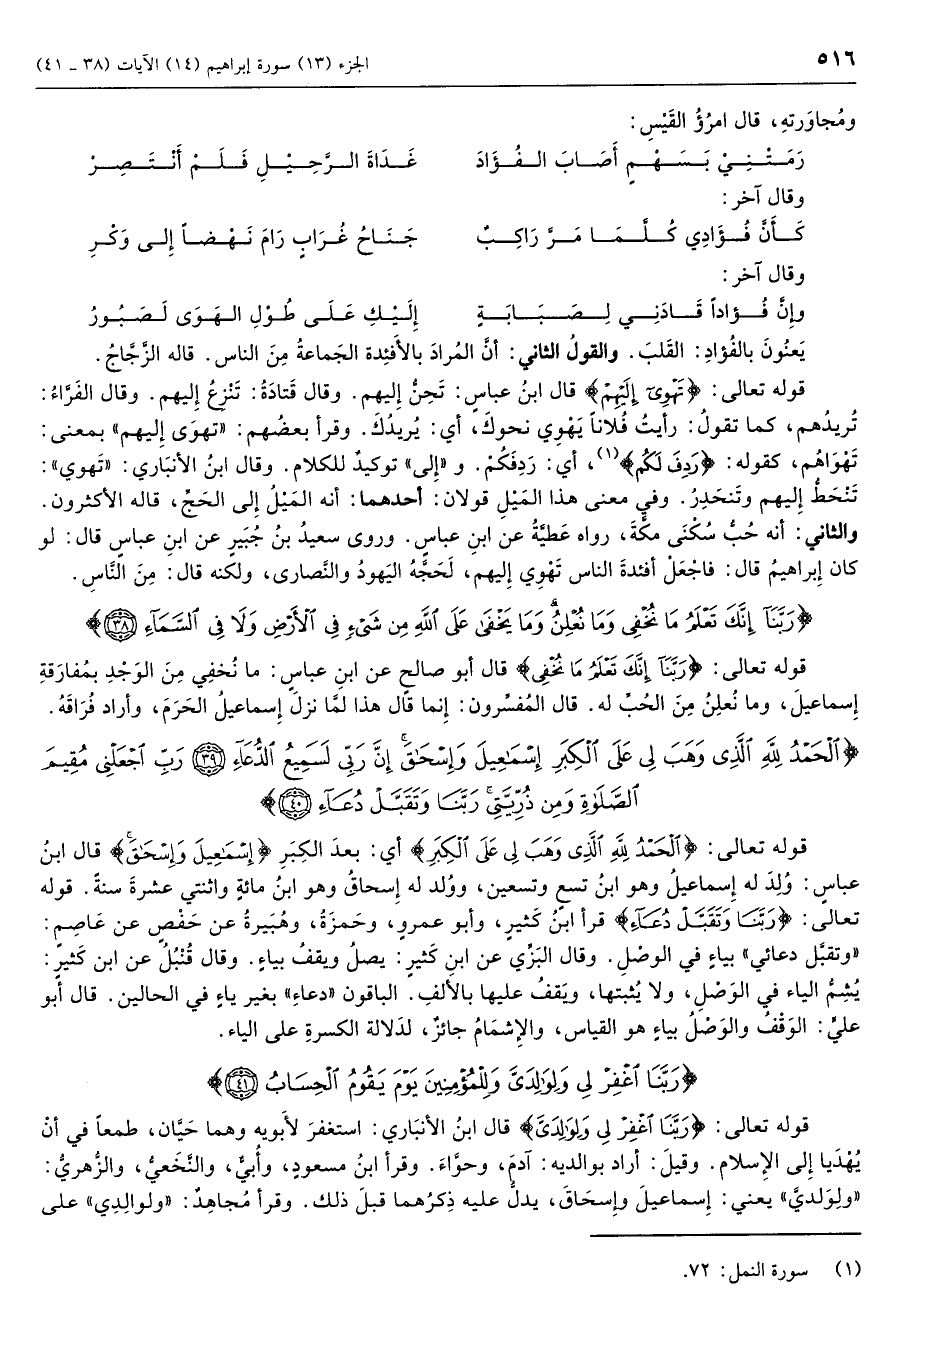 ٥١٦
الجزء (١٣) سورة إبراهيم (١٤) الآيات (٣٨ ـ ٤١)
ومُجاوَرتهِ، قال امرُؤُ القَيْسِ:
رَمَتْنِيْ بَسَهْمٍ أَصَابَ الفُؤَادَ غَدَاةَ الرَّحِيْلِ فَلَمْ أَنْتَصِرْ
وقال آخر:
كَأَنَّ فُؤَادِي كُلَّمَا مَرَّ رَاكِبٌ جَنَاحُ غُرَابٍ رَامَ نَهْضاً إِلى وَكْرِ
وقال آخر:
وإِنَّ فُؤاداً قَادَنِي لِصَبَابَةٍ إِلَيْكِ عَلَى طُوْلِ الهَوَى لَصَبُورُ
يَعنُونَ بالفُؤادِ: القَلبَ. والقولُ الثاني: أنَّ المُرادَ بالأفئِدة الجَماعةُ مِنَ الناس. قاله الزَّجَّاجُ.
قوله تعالى: ﴿تَهْوِىٓ إِلَيْهِمْ﴾ قال ابنُ عباس: تَحِنُّ إليهم. وقال قَتادَةُ: تَنْزِعُ إليهم. وقال الفَرَّاءُ:
تُريدُهم، كما تقولُ: رأيتُ فُلاناً يَهْوِي نحوكَ، أي: يُريدُكَ. وقرأ بعضُهم: «تهوَى إليهم» بمعنى:
تَهْوَاهُم، كقوله: ﴿رَدِفَ لَكُم﴾(١)، أي: رَدِفَكُمْ. و «إلى» توكيدٌ للكلام. وقال ابنُ الأنبَاري: «تَهوي»:
تَنْحَطُّ إليهم وتَنحَدِرُ. وفي معنى هذا المَيْلِ قولان: أحدهما: أنه المَيْلُ إلى الحَجِّ، قاله الأكثرون.
والثاني: أنه حُبُّ سُكْنَى مكَّةَ، رواه عَطيَّةُ عن ابنِ عباسٍ. وروى سعيدُ بنُ جُبَيرٍ عن ابنِ عباسٍ قال: لو
كان إبراهيمُ قال: فاجْعَلْ أفئدةَ الناس تَهْوِي إليهم، لَحَجَّهُ اليَهودُ والنَّصارى، ولكنه قال: مِنَ النَّاسِ.
﴿رَبَّنَآ إِنَّكَ تَعْلَمُ مَا نُخْفِى وَمَا نُعْلِنُ وَمَا يَخْفَىٰ عَلَى ٱللَّهِ مِن شَىْءٍ فِى ٱلْأَرْضِ وَلَا فِى ٱلسَّمَآءِ ٣٨﴾
قوله تعالى: ﴿رَبَّنَآ إِنَّكَ تَعْلَمُ مَا نُخْفِى﴾ قال أبو صالحٍ عن ابنِ عباسٍ: ما نُخفِي مِنَ الوَجْدِ بمُفارَقةِ
إسماعيلَ، وما نُعلِنُ مِنَ الحُبِّ له. قال المُفسِّرون: إنما قال هذا لمَّا نزلَ إسماعيلُ الحَرَمَ، وأراد فُراقَهُ.
﴿ٱلْحَمْدُ لِلَّهِ ٱلَّذِى وَهَبَ لِى عَلَى ٱلْكِبَرِ إِسْمَٰعِيلَ وَإِسْحَٰقَ إِنَّ رَبِّى لَسَمِيعُ ٱلدُّعَآءِ ٣٩ رَبِّ ٱجْعَلْنِى مُقِيمَ
ٱلصَّلَوٰةِ وَمِن ذُرِّيَّتِى رَبَّنَا وَتَقَبَّلْ دُعَآءِ ٤٠﴾
قوله تعالى: ﴿ٱلْحَمْدُ لِلَّهِ ٱلَّذِى وَهَبَ لِى عَلَى ٱلْكِبَرِ﴾ أي: بعدَ الكِبَرِ ﴿إِسْمَٰعِيلَ وَإِسْحَٰقَ﴾ قال ابنُ
عباسٍ: وُلِدَ له إسماعيلُ وهو ابنُ تسعٍ وتسعين، ووُلد له إسحاقُ وهو ابنُ مائةٍ واثنتي عشرةَ سنةً. قوله
تعالى: ﴿رَبَّنَا وَتَقَبَّلْ دُعَآءِ﴾ قرأ ابنُ كَثيرٍ، وأبو عمروٍ، وحَمزَةُ، وهُبَيرةُ عن حَفْصٍ عن عَاصِمٍ:
«وتقبَّل دعائي» بياءٍ في الوَصْلِ. وقال البَزِّي عن ابنِ كَثيرٍ: يصلُ ويقفُ بياءٍ. وقال قُنْبُلٌ عن ابن كَثيرٍ:
يُشِمُّ الياء في الوَصْلِ، ولا يُثبتها، ويَقفُ عليها بالألفِ. الباقون «دعاءِ» بغير ياءٍ في الحالين. قال أبو
عليٍّ: الوَقْفُ والوَصْلُ بياءٍ هو القياس، والإشمَامُ جائزٌ، لدَلالة الكسرةِ على الياء.
﴿رَبَّنَا ٱغْفِرْ لِى وَلِوَٰلِدَىَّ وَلِلْمُؤْمِنِينَ يَوْمَ يَقُومُ ٱلْحِسَابُ ٤١﴾
قوله تعالى: ﴿رَبَّنَا ٱغْفِرْ لِى وَلِوَٰلِدَىَّ﴾ قال ابنُ الأنبَاري: استغفرَ لأبويه وهما حَيَّان، طمعاً في أنْ
يُهْدَيا إلى الإسلام. وقيلَ: أراد بوالديه: آدمَ، وحوَّاءَ. وقرأ ابنُ مسعودٍ، وأُبيٌّ، والنَّخَعيُّ، والزُّهريُّ:
«ولِوَلَديَّ» يعني: إسماعيلَ وإسحَاقَ، يدلُّ عليه ذِكرُهما قبلَ ذلك. وقرأ مُجاهِدٌ: «ولوالِدِي» على
(١) سورة النمل: ٧٢.